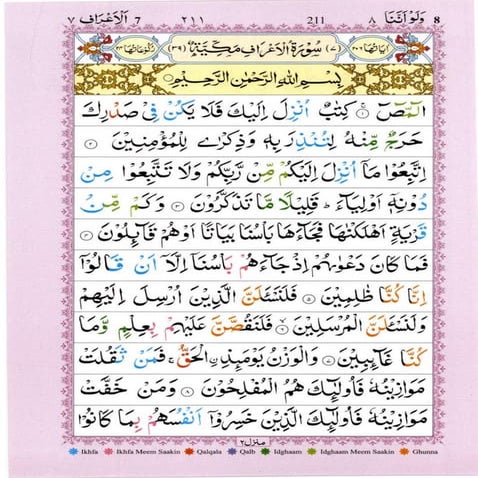 ٨ وَلَوْ أَنَّنَا 8 211 ٢١١ 7 اَلْاَعْرَاف ٧
سُوْرَةُ الْاَعْرَافِ مَكِّيَّةٌ (٧) (٣٩)
بِسْمِ اللّٰهِ الرَّحْمٰنِ الرَّحِيْمِ
الٓمّٓصٓ ۚ ١ كِتٰبٌ اُنْزِلَ اِلَيْكَ فَلَا يَكُنْ فِيْ صَدْرِكَ
حَرَجٌ مِّنْهُ لِتُنْذِرَ بِهٖ وَذِكْرٰى لِلْمُؤْمِنِيْنَ ٢
اِتَّبِعُوْا مَآ اُنْزِلَ اِلَيْكُمْ مِّنْ رَّبِّكُمْ وَلَا تَتَّبِعُوْا مِنْ
دُوْنِهٖٓ اَوْلِيَآءَ ؕ قَلِيْلًا مَّا تَذَكَّرُوْنَ ٣ وَكَمْ مِّنْ
قَرْيَةٍ اَهْلَكْنٰهَا فَجَآءَهَا بَاْسُنَا بَيَاتًا اَوْ هُمْ قَآئِلُوْنَ ٤
فَمَا كَانَ دَعْوٰىهُمْ اِذْ جَآءَهُمْ بَاْسُنَآ اِلَّآ اَنْ قَالُوْٓا
اِنَّا كُنَّا ظٰلِمِيْنَ ٥ فَلَنَسْـَٔلَنَّ الَّذِيْنَ اُرْسِلَ اِلَيْهِمْ
وَلَنَسْـَٔلَنَّ الْمُرْسَلِيْنَ ٦ فَلَنَقُصَّنَّ عَلَيْهِمْ بِعِلْمٍ وَّمَا
كُنَّا غَآئِبِيْنَ ٧ وَالْوَزْنُ يَوْمَئِذِ اۨلْحَقُّ ۚ فَمَنْ ثَقُلَتْ
مَوَازِيْنُهٗ فَاُولٰٓئِكَ هُمُ الْمُفْلِحُوْنَ ٨ وَمَنْ خَفَّتْ
مَوَازِيْنُهٗ فَاُولٰٓئِكَ الَّذِيْنَ خَسِرُوْٓا اَنْفُسَهُمْ بِمَا كَانُوْا
منزل ٢
Ikhfa Ikhfa Meem Saakin Qalqala Qalb Idghaam Idghaam Meem Saakin Ghunna